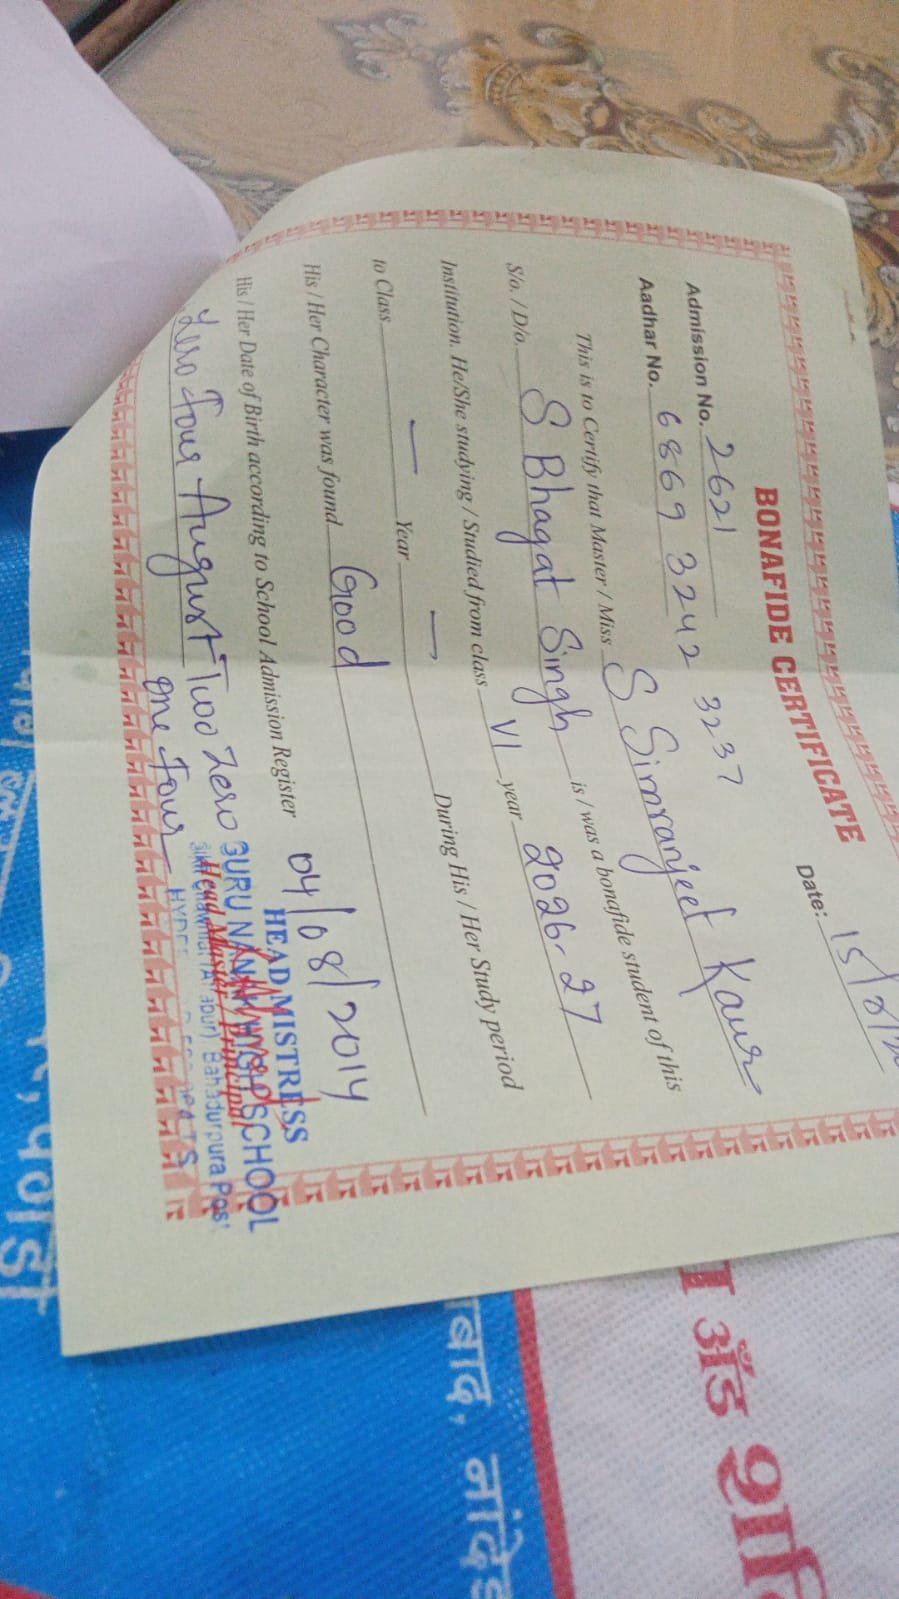 Date: 15/
BONAFIDE CERTIFICATE
Admission No. 2621
Aadhar No. 6869 3242 3237
This is to Certify that Master / Miss S Simranjeet Kaur
S/o. / D/o. S Bhagat Singh is / was a bonafide student of this
Institution. He/She studying / Studied from class VI year 2026-27
to Class — Year — During His / Her Study period
His / Her Character was found Good
His / Her Date of Birth according to School Admission Register 04/08/2014
Zero Four August Two Zero
One Four
HEAD MISTRESS
GURU NANAK HIGH SCHOOL
Head Master / Principal
Bahadurpura Post
बाद, नांदेड
अँड शा